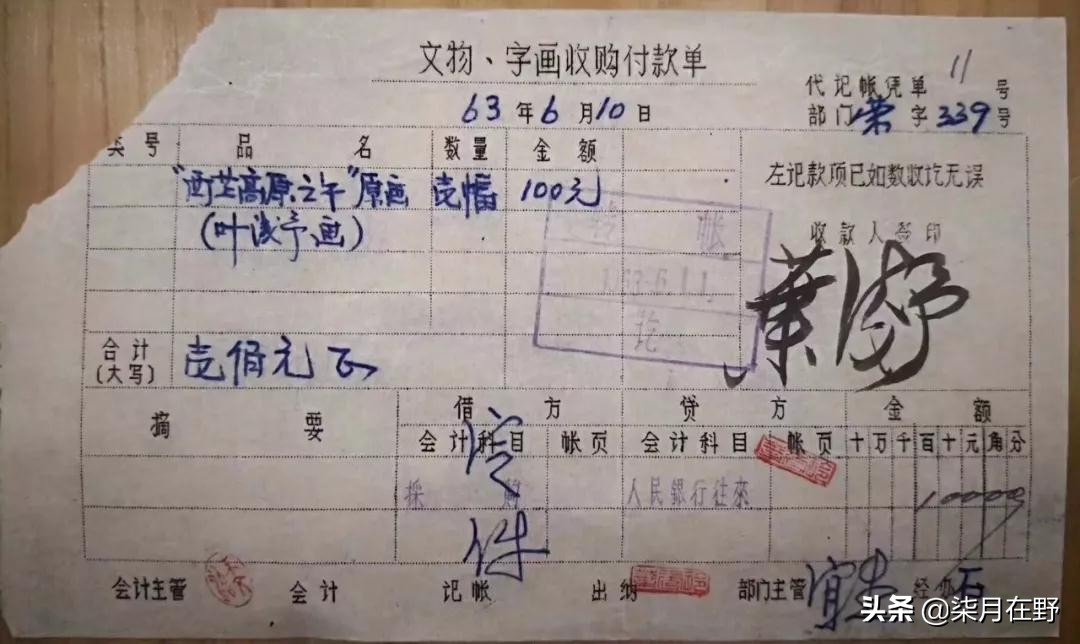 文物、字画收购付款单
63年6月10日
代记帐凭单 11 号
部门荣字339号
类号 品名 数量 金额
左记款项已如数收讫无误
"西藏高原之午"原画 壹幅 100元
(叶浅予画)
收款人签印
转帐
1963.6.11.
讫
葉浅予
合计
(大写) 壹佰元正
摘要 借方 贷方 金额
会计科目 帐页 会计科目 帐页 十万千百十元角分
採购 人民銀行往來 10000
会计主管 会计 记帐 出纳 部门主管 经办
头条 @柒月在野